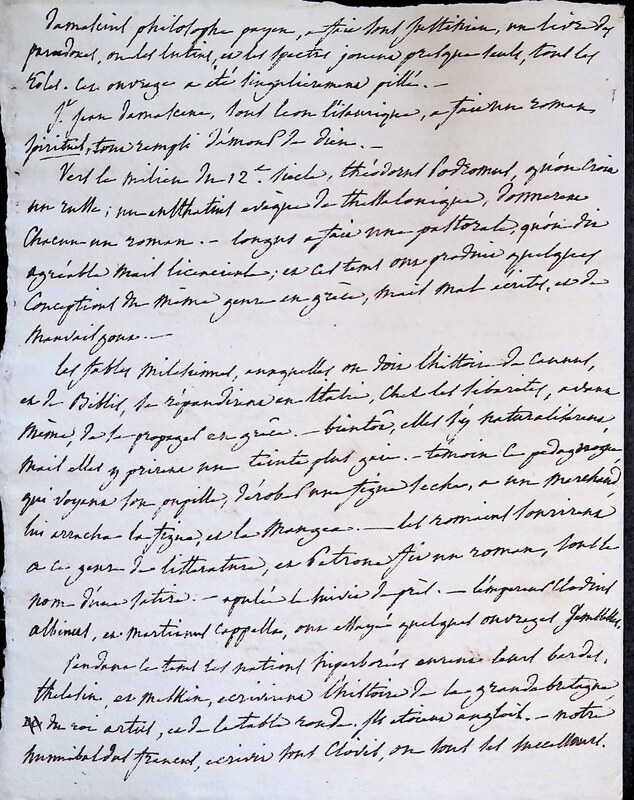 Damascius philosophe payen, a fait sous Justinien, un livre des
paradoxes, ou les lutins, et les spectres jouent presque seuls, tous les
roles. Cet ouvrage a été singulierement pillé. —
St jean damascene, sous leon l'isaurique, a fait un roman
spirituel, tout rempli d'amour de dieu. —
Vers le milieu du 12e siècle, théodorus Prodromus, qu'on croit
un russe; un eusthatius evêque de thessalonique, donnerent
Chacun un roman. — longus a fait une pastorale, qu'on dit
agréable mais licencieuse; et ces tems ont produit quelques
Conceptions du même genre en grèce, mais mal écrites, et de
mauvais gout. —
les fables milesiennes, auxquelles on doit l'histoire de Caunus,
et de Biblis, se répandirent en Italie, Chez les sibarites, avant
même de se propager en grèce. — bientôt, elles s'y naturaliserent
mais elles y prirent une teinte plus gaie. — témoin ce pedagogue
qui voyant son pupille, dérober une figue seche, a un marchand,
lui arracha la figue, et la mangea. — les romains sourirent
a ce genre de litterature, et Petrone fit un roman, sous le
nom d'une satire. — apulée le suivit de près. — l'empereur Clodius
albinus, et martianus cappella, ont essayé quelques ouvrages semblables.
Pendant ce tems les nations hiperborées eurent leurs bardes.
thelesin, et melkin, ecrivirent l'histoire de la grande bretagne,
du roi artus, et de la table ronde. Ils etoient anglois. — notre
hunnibaldus francus, ecrivit sous Clovis, ou sous ses successeurs.